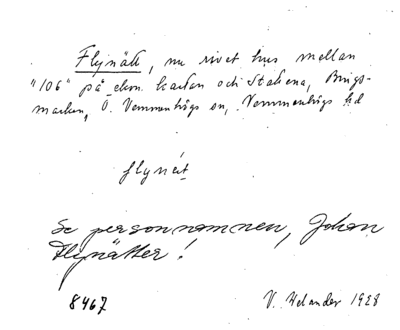 Flynätt, nu rivet hus mellan
"106" på ekon. kartan och Stakena, Brings-
marken, Ö. Vemmenhögs sn, Vemmenhögs hd
flynět
Se personnamnen, Johan
Flynätter!
8467 V. Helander 1928